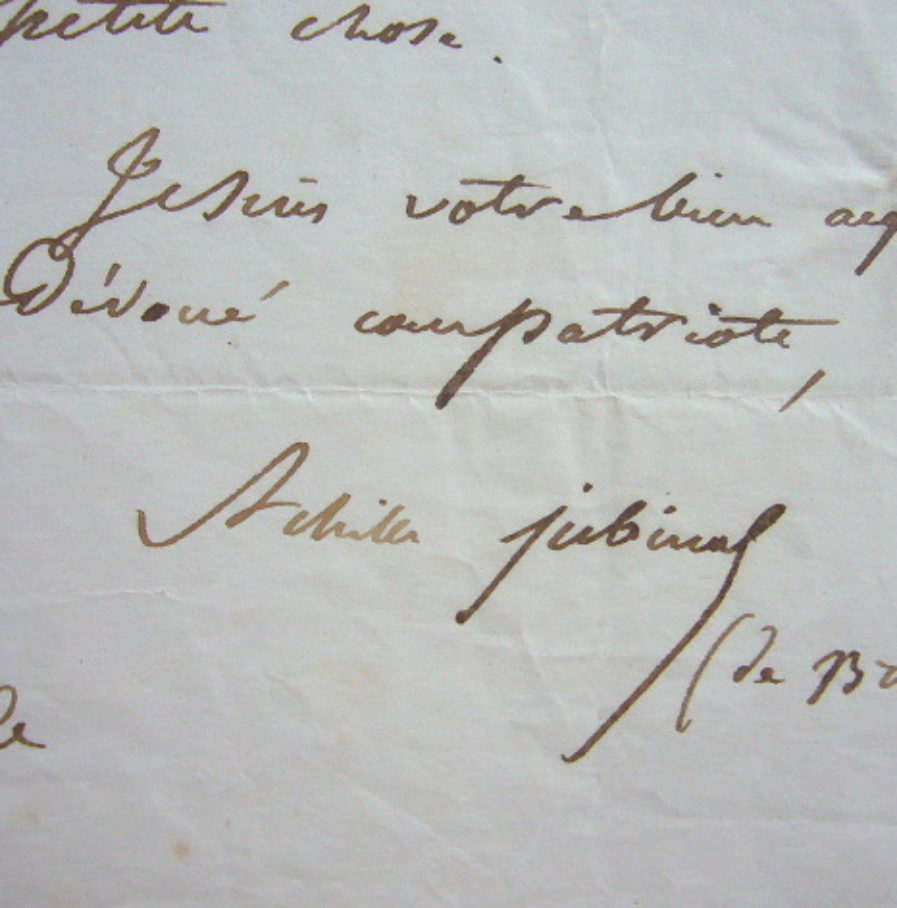 petite chose.
Je suis votre bien
Dévoué compatriote,
Achille jubinal
(de